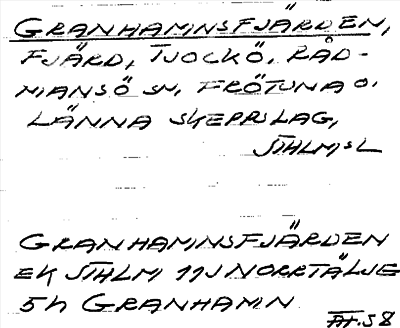 GRANHAMNSFJÄRDEN,
FJÄRD, TJOCKÖ, RÅD-
MANSÖ SN, FRÖTUNA O.
LÄNNA SKEPPSLAG,
STHLMS L
GRANHAMNSFJÄRDEN
EK STHLM 11J NORRTÄLJE
5h GRANHAMN